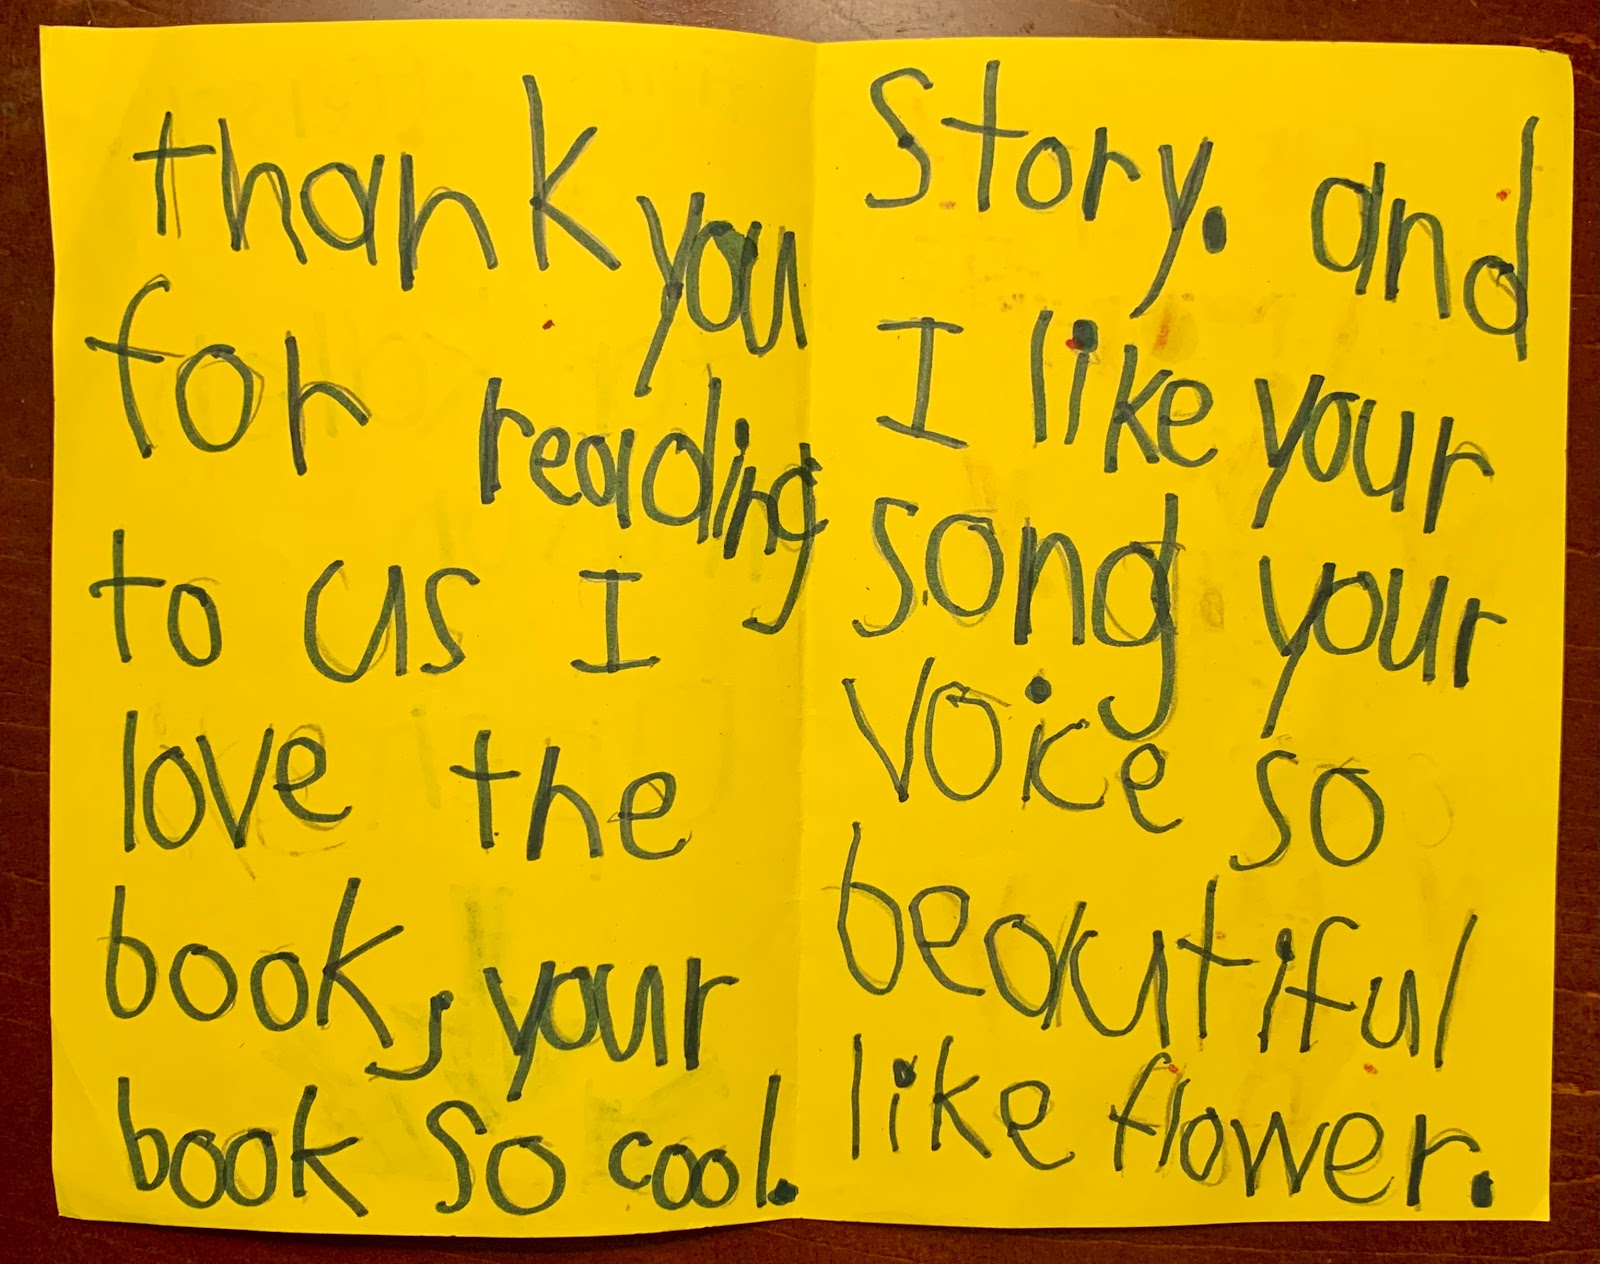 thank you
for reading
to us I
love the
book, your
book so cool.
Story. and
I like your
song your
voice so
beautiful
like flower.